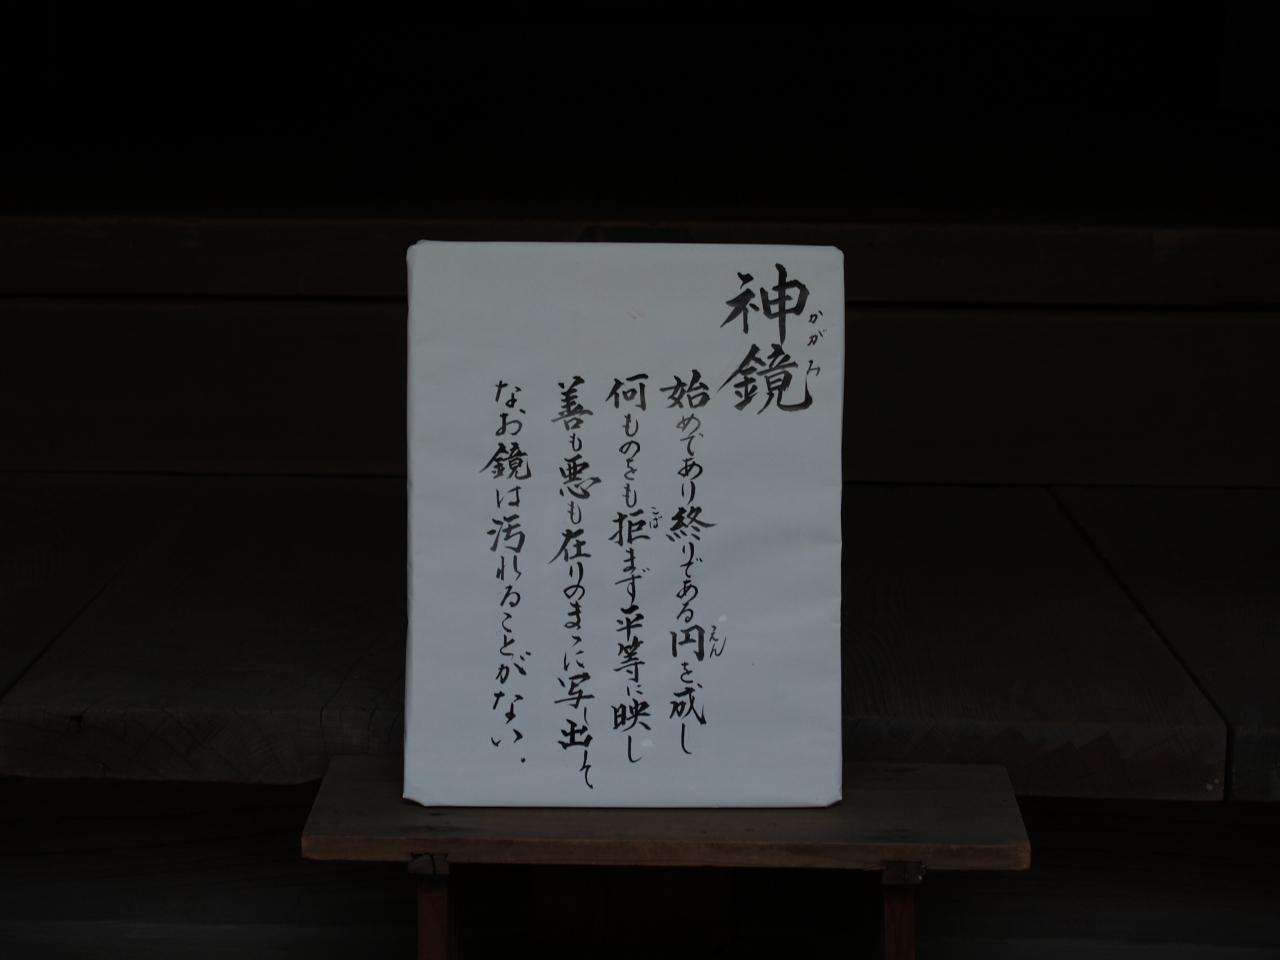 神鏡
かがみ
始めであり終りである円を成し
えん
何ものをも拒まず平等に映し
こば
善も悪も在りのまゝに写し出して
なお鏡は汚れることがない.